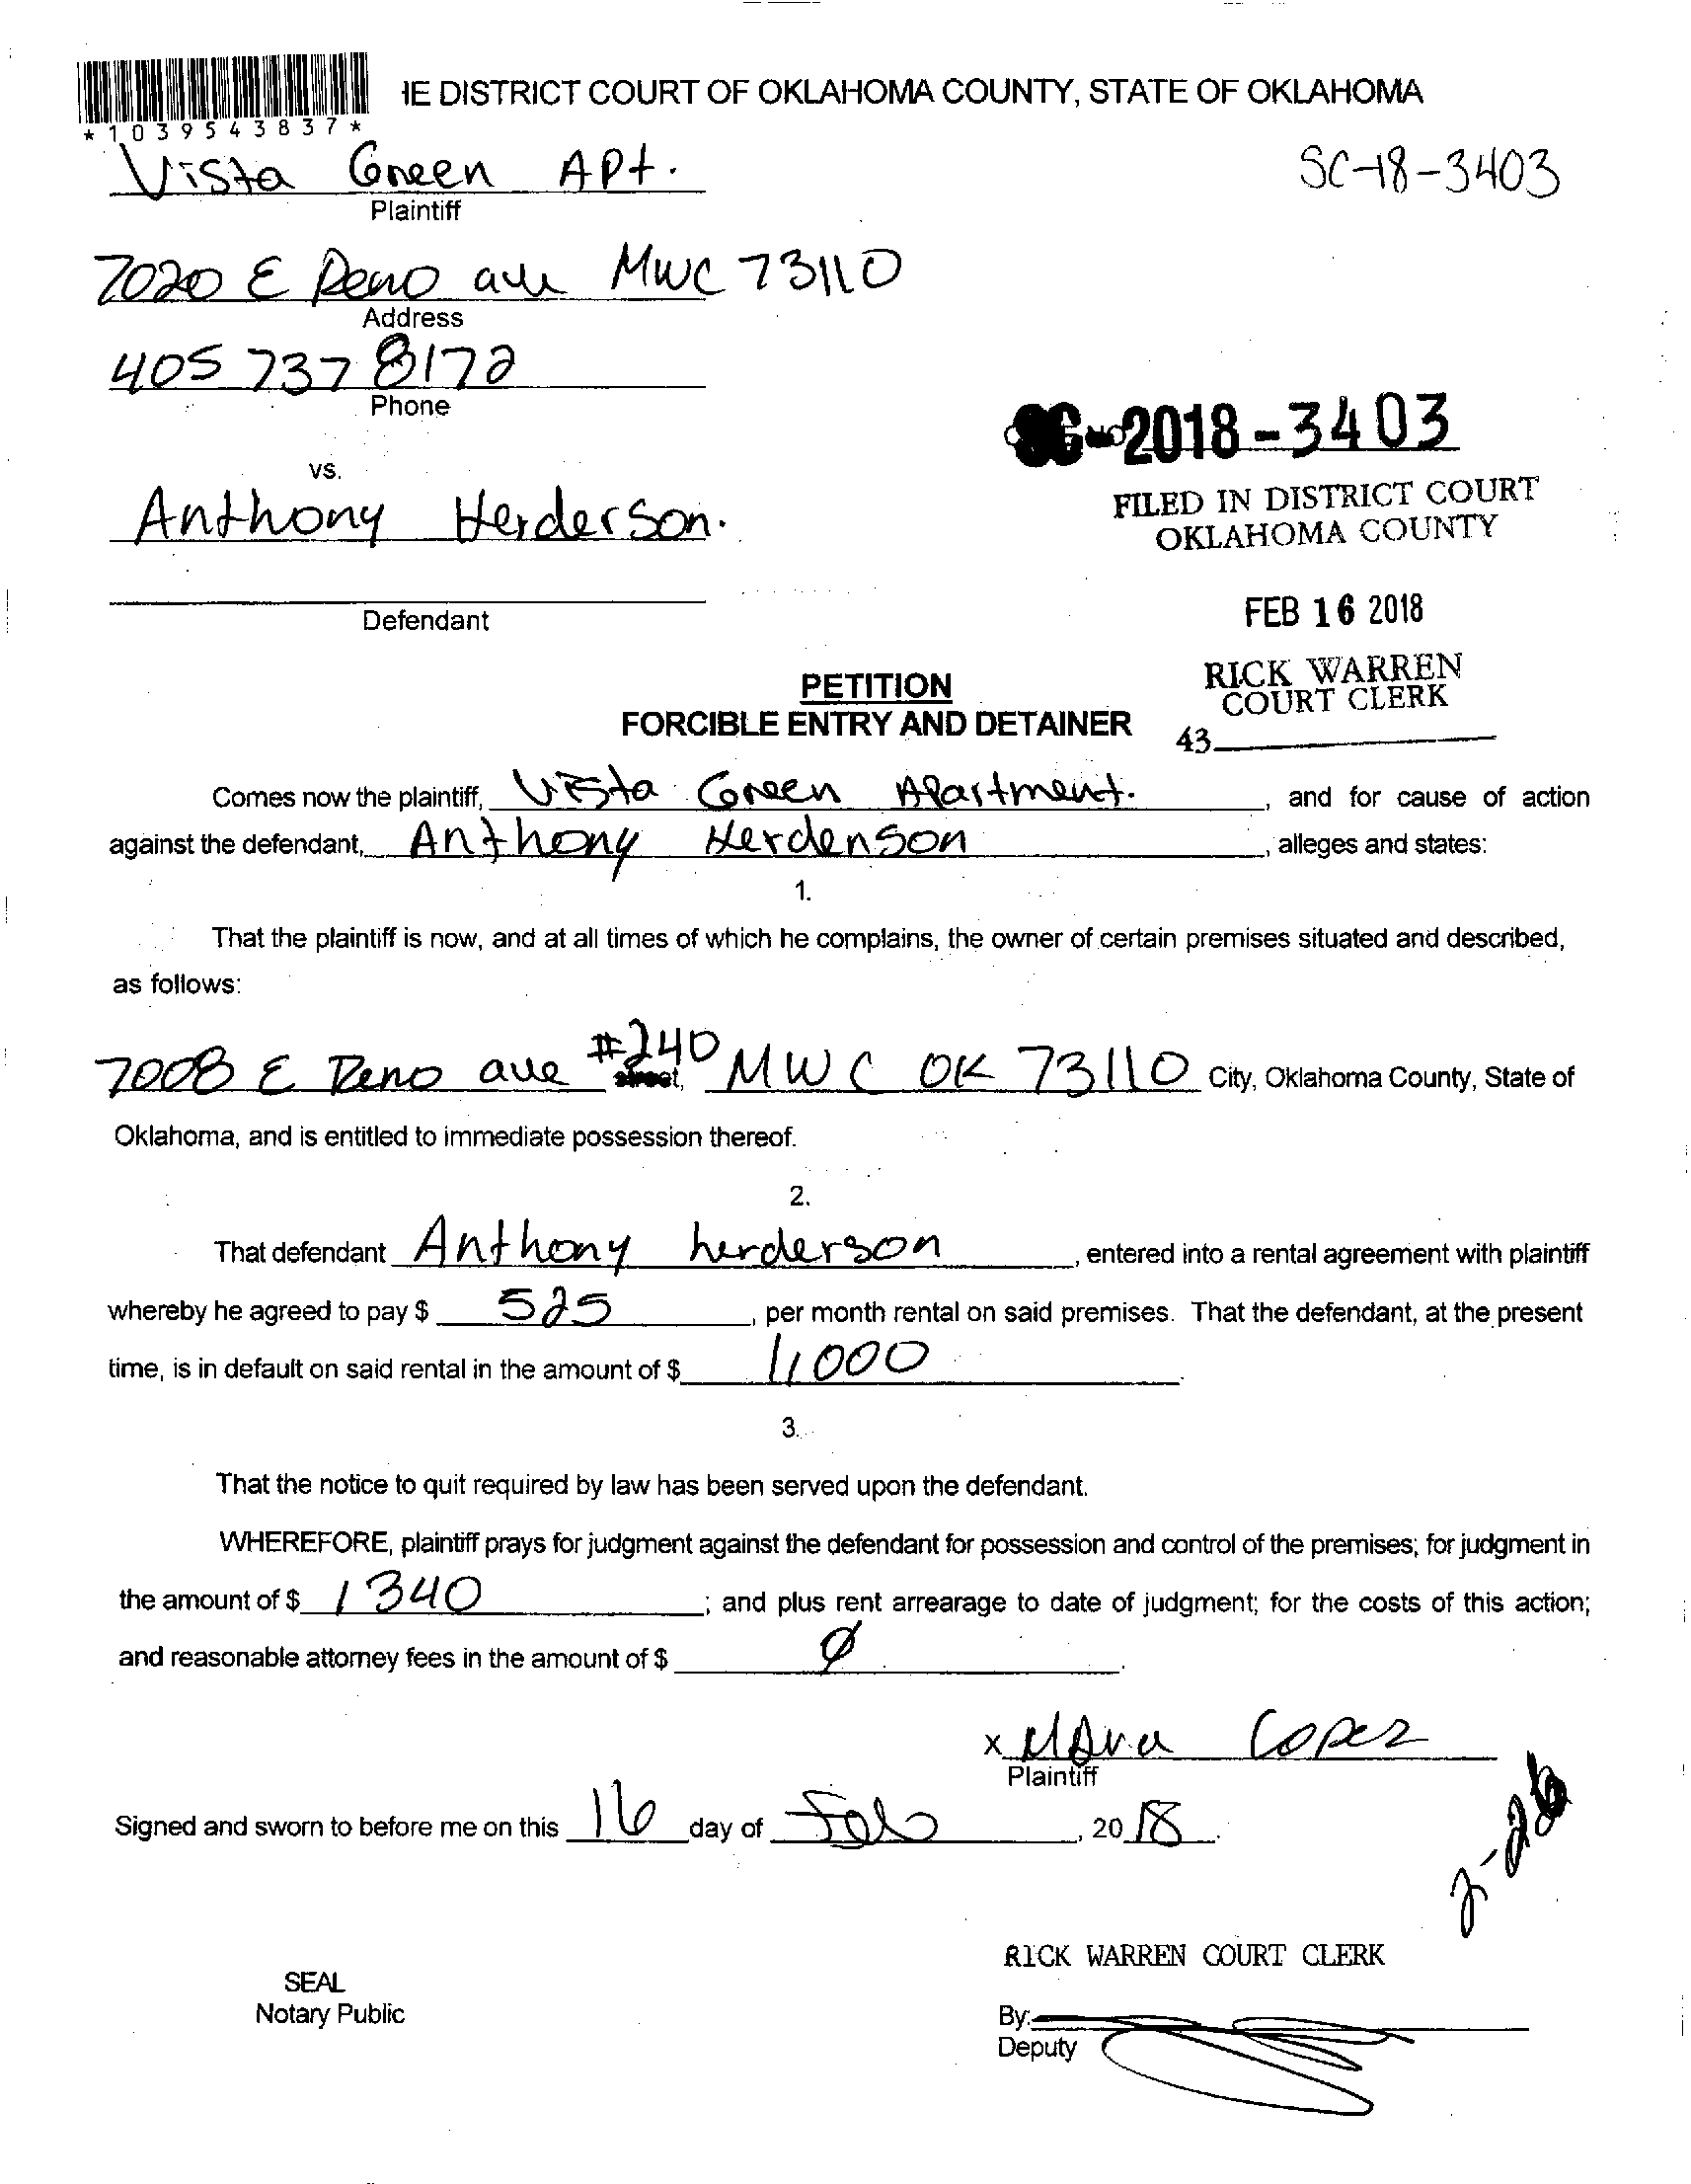 IE DISTRICT COURT OF OKLAHOMA COUNTY, STATE OF OKLAHOMA
*1039543837*
Vista Green Apt.
SC-18-3403
Plaintiff
7020 E Reno ave MWC 73110
Address
405 737 8172
Phone
SC-2018-3403
vs.
FILED IN DISTRICT COURT
Anthony Herderson.
OKLAHOMA COUNTY
FEB 16 2018
Defendant
RICK WARREN
PETITION
COURT CLERK
FORCIBLE ENTRY AND DETAINER
43
Comes now the plaintiff, Vista Green Apartment. , and for cause of action
against the defendant, Anthony Herdenson , alleges and states:
1.
That the plaintiff is now, and at all times of which he complains, the owner of certain premises situated and described,
as follows:
7008 E Reno ave #240 street, MWC OK 73110 City, Oklahoma County, State of
Oklahoma, and is entitled to immediate possession thereof.
2.
That defendant Anthony herderson , entered into a rental agreement with plaintiff
whereby he agreed to pay $ 525 , per month rental on said premises. That the defendant, at the present
time, is in default on said rental in the amount of $ 1,000 .
3.
That the notice to quit required by law has been served upon the defendant.
WHEREFORE, plaintiff prays for judgment against the defendant for possession and control of the premises; for judgment in
the amount of $ 1340 ; and plus rent arrearage to date of judgment; for the costs of this action;
and reasonable attorney fees in the amount of $ Ø .
x Lopez
Plaintiff
Signed and sworn to before me on this 16 day of Feb , 2018.
2-26
RICK WARREN COURT CLERK
SEAL
Notary Public
By:
Deputy